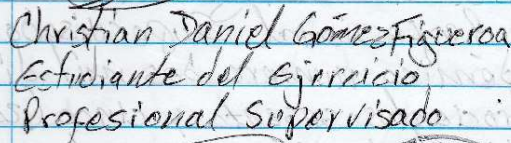 Christian Daniel Gómez Figueroa
Estudiante del Ejercicio
Profesional Supervisado